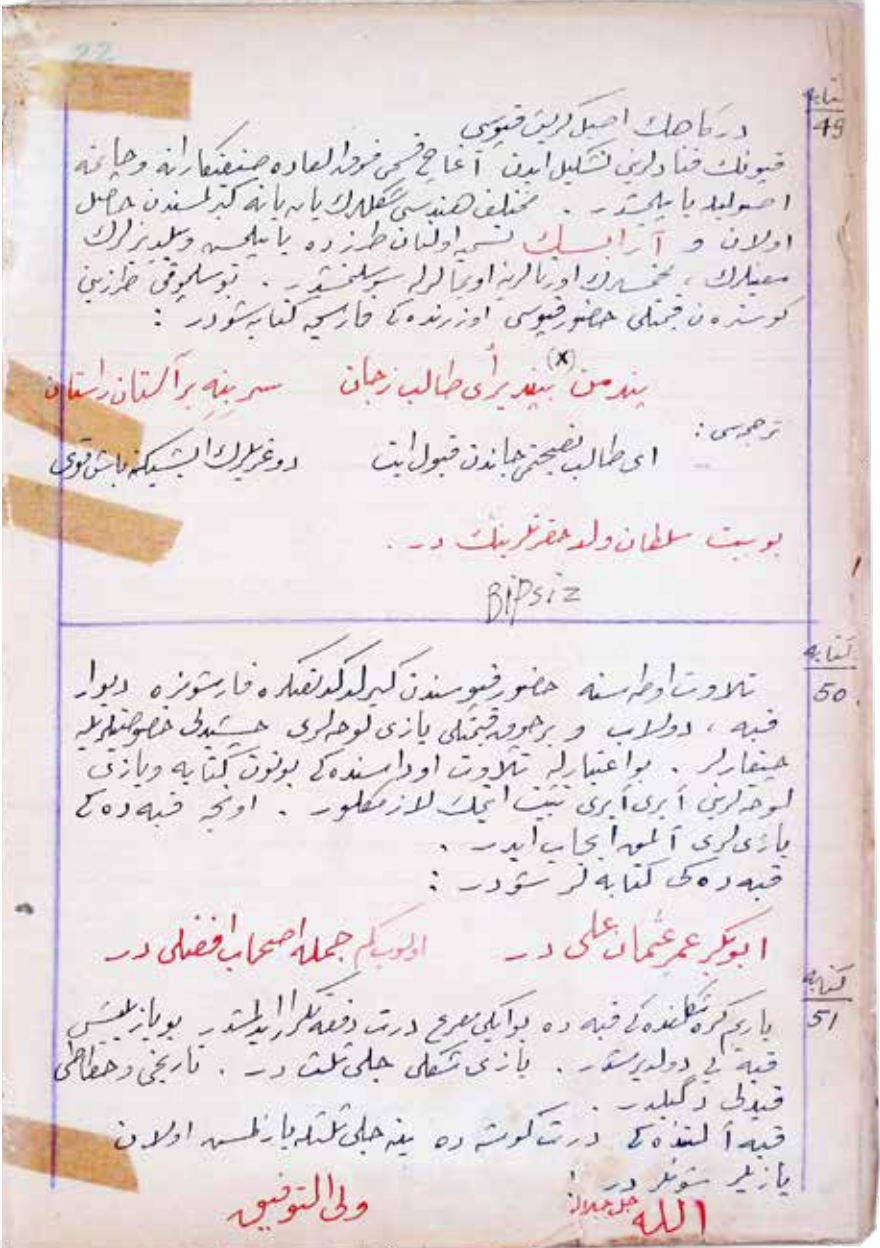 22
كتابه
49
درگاهك اصيل گريش قپوسى
قپونك قنادلرينى تشكيل ايدن آغاج قسمى فوق العاده صنعتكارانه و چاتمه
اصوليله ياپيلمشدر . مختلف هندسى شكللرك يان يانه گتيرلمسندن حاصل
اولان و آرابسك تسميه اولنان طرزده ياپيلمش و ييلديزلرك
معينلرك ، مخمسلرك اورتالرينه اويمالرله سوسلنمشدر . بو سلجوقى طرزينى
گوسترەن قيمتلى حضور قپوسى اوزرنده كى فارسجه كتابه شودر :
پند من (x) بپذير اى طالب زجان سر بنه بر آستان راستان
ترجمه سى :
اى طالب نصيحتمى جاندن قبول ايت دوغريلرك اشيگنه باش قوى
بو بيت سلطان ولد حضرتلرينك در .
BİPSİZ
كتابه
50
تلاوت اوطه سنه حضور قپوسندن گيرلدكدنصكره قارشومزه ديوار
قبه ، دولاب و برچوق قيمتلى يازى لوحه لرى چشيدلى خصوصيتلريله
چيقارلر . بو اعتبارله تلاوت اوداسنده كى بوتون كتابه و يازى
لوحه لرينى آيرى آيرى تثبيت ايتمك لازمگلور . اوڭجه قبه ده كى
يازى لرى آلمق ايجاب ايدر .
قبه ده كى كتابه لر شودر :
ابوبكر عمر عثمان على در اولوب كيم جمله اصحاب افضلى در
كتابه
51
ياريم كره شكلنده كى قبه ده بو ايكى مصرع درت دفعه تكرار ايدلمشدر بو يازيلش
قبه يى دولديرمشدر . يازى شكلى جلى ثلث در . تاريخى و خطاطى
قيدلى دگيلدر .
قبه آلتنده كى درت گوشه ده ينه جلى ثلثله يازلمش اولان
يازيلر شونلر در :
الله جل جلاله ولى التوفيق